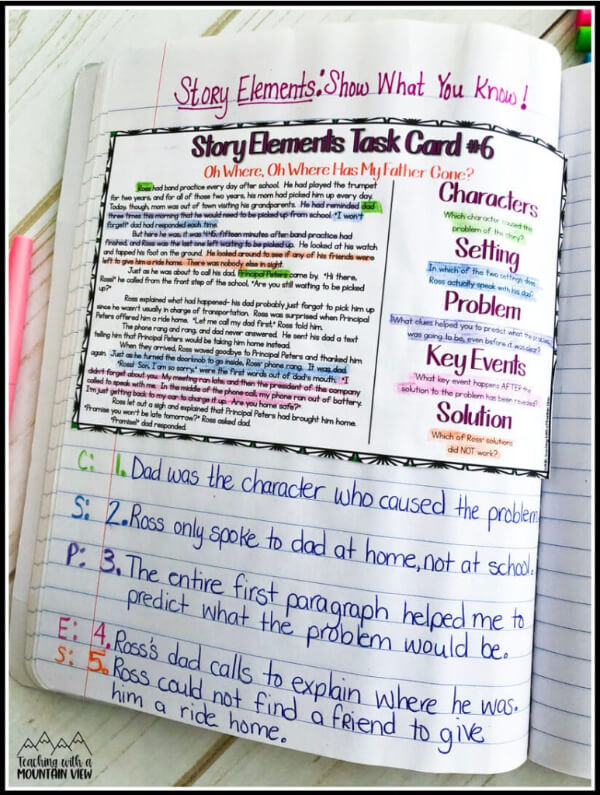 Story Elements: Show What You Know!
Story Elements Task Card #6
Oh Where, Oh Where Has My Father Gone?
Ross had band practice every day after school. He had played the trumpet
for two years, and for all of those two years, his mom had picked him up every day.
Today, though, mom was out of town visiting his grandparents. He had reminded dad
three times this morning that he would need to be picked up from school. "I won't
forget!" dad had responded each time.
But here he was. It was 4:45, fifteen minutes after band practice had
finished, and Ross was the last one left waiting to be picked up. He looked at his watch
and tapped his foot on the ground. He looked around to see if any of his friends were
left to give him a ride home. There was nobody else in sight.
Just as he was about to call his dad, Principal Peters came by. "Hi there,
Ross!" he called from the front step of the school. "Are you still waiting to be picked
up?"
Ross explained what had happened- his dad probably just forgot to pick him up
since he wasn't usually in charge of transportation. Ross was surprised when Principal
Peters offered him a ride home. "Let me call my dad first," Ross told him.
The phone rang and rang, and dad never answered. He sent his dad a text
telling him that Principal Peters would be taking him home instead.
When they arrived, Ross waved goodbye to Principal Peters and thanked him
again. Just as he turned the doorknob to go inside, Ross' phone rang. It was dad.
"Ross! Son, I am so sorry," were the first words out of dad's mouth. "I
didn't forget about you. My meeting ran late, and then the president of the company
called to speak with me. In the middle of the phone call, my phone ran out of battery.
I'm just getting back to my car to charge it up. Are you home safe?"
Ross let out a sigh and explained that Principal Peters had brought him home.
"Promise you won't be late tomorrow?" Ross asked dad.
"Promise!" dad responded.
Characters
Which character caused the
problem of the story?
Setting
In which of the two settings does
Ross actually speak with his dad?
Problem
What clues helped you to predict what the problem
was going to be, even before it was clear?
Key Events
What key event happens AFTER the
solution to the problem has been revealed?
Solution
Which of Ross' solutions
did NOT work?
C: 1. Dad was the character who caused the problem
S: 2. Ross only spoke to dad at home, not at school.
P: 3. The entire first paragraph helped me to
predict what the problem would be.
E: 4. Ross's dad calls to explain where he was.
S: 5. Ross could not find a friend to give
him a ride home.
Teaching with a
MOUNTAIN VIEW